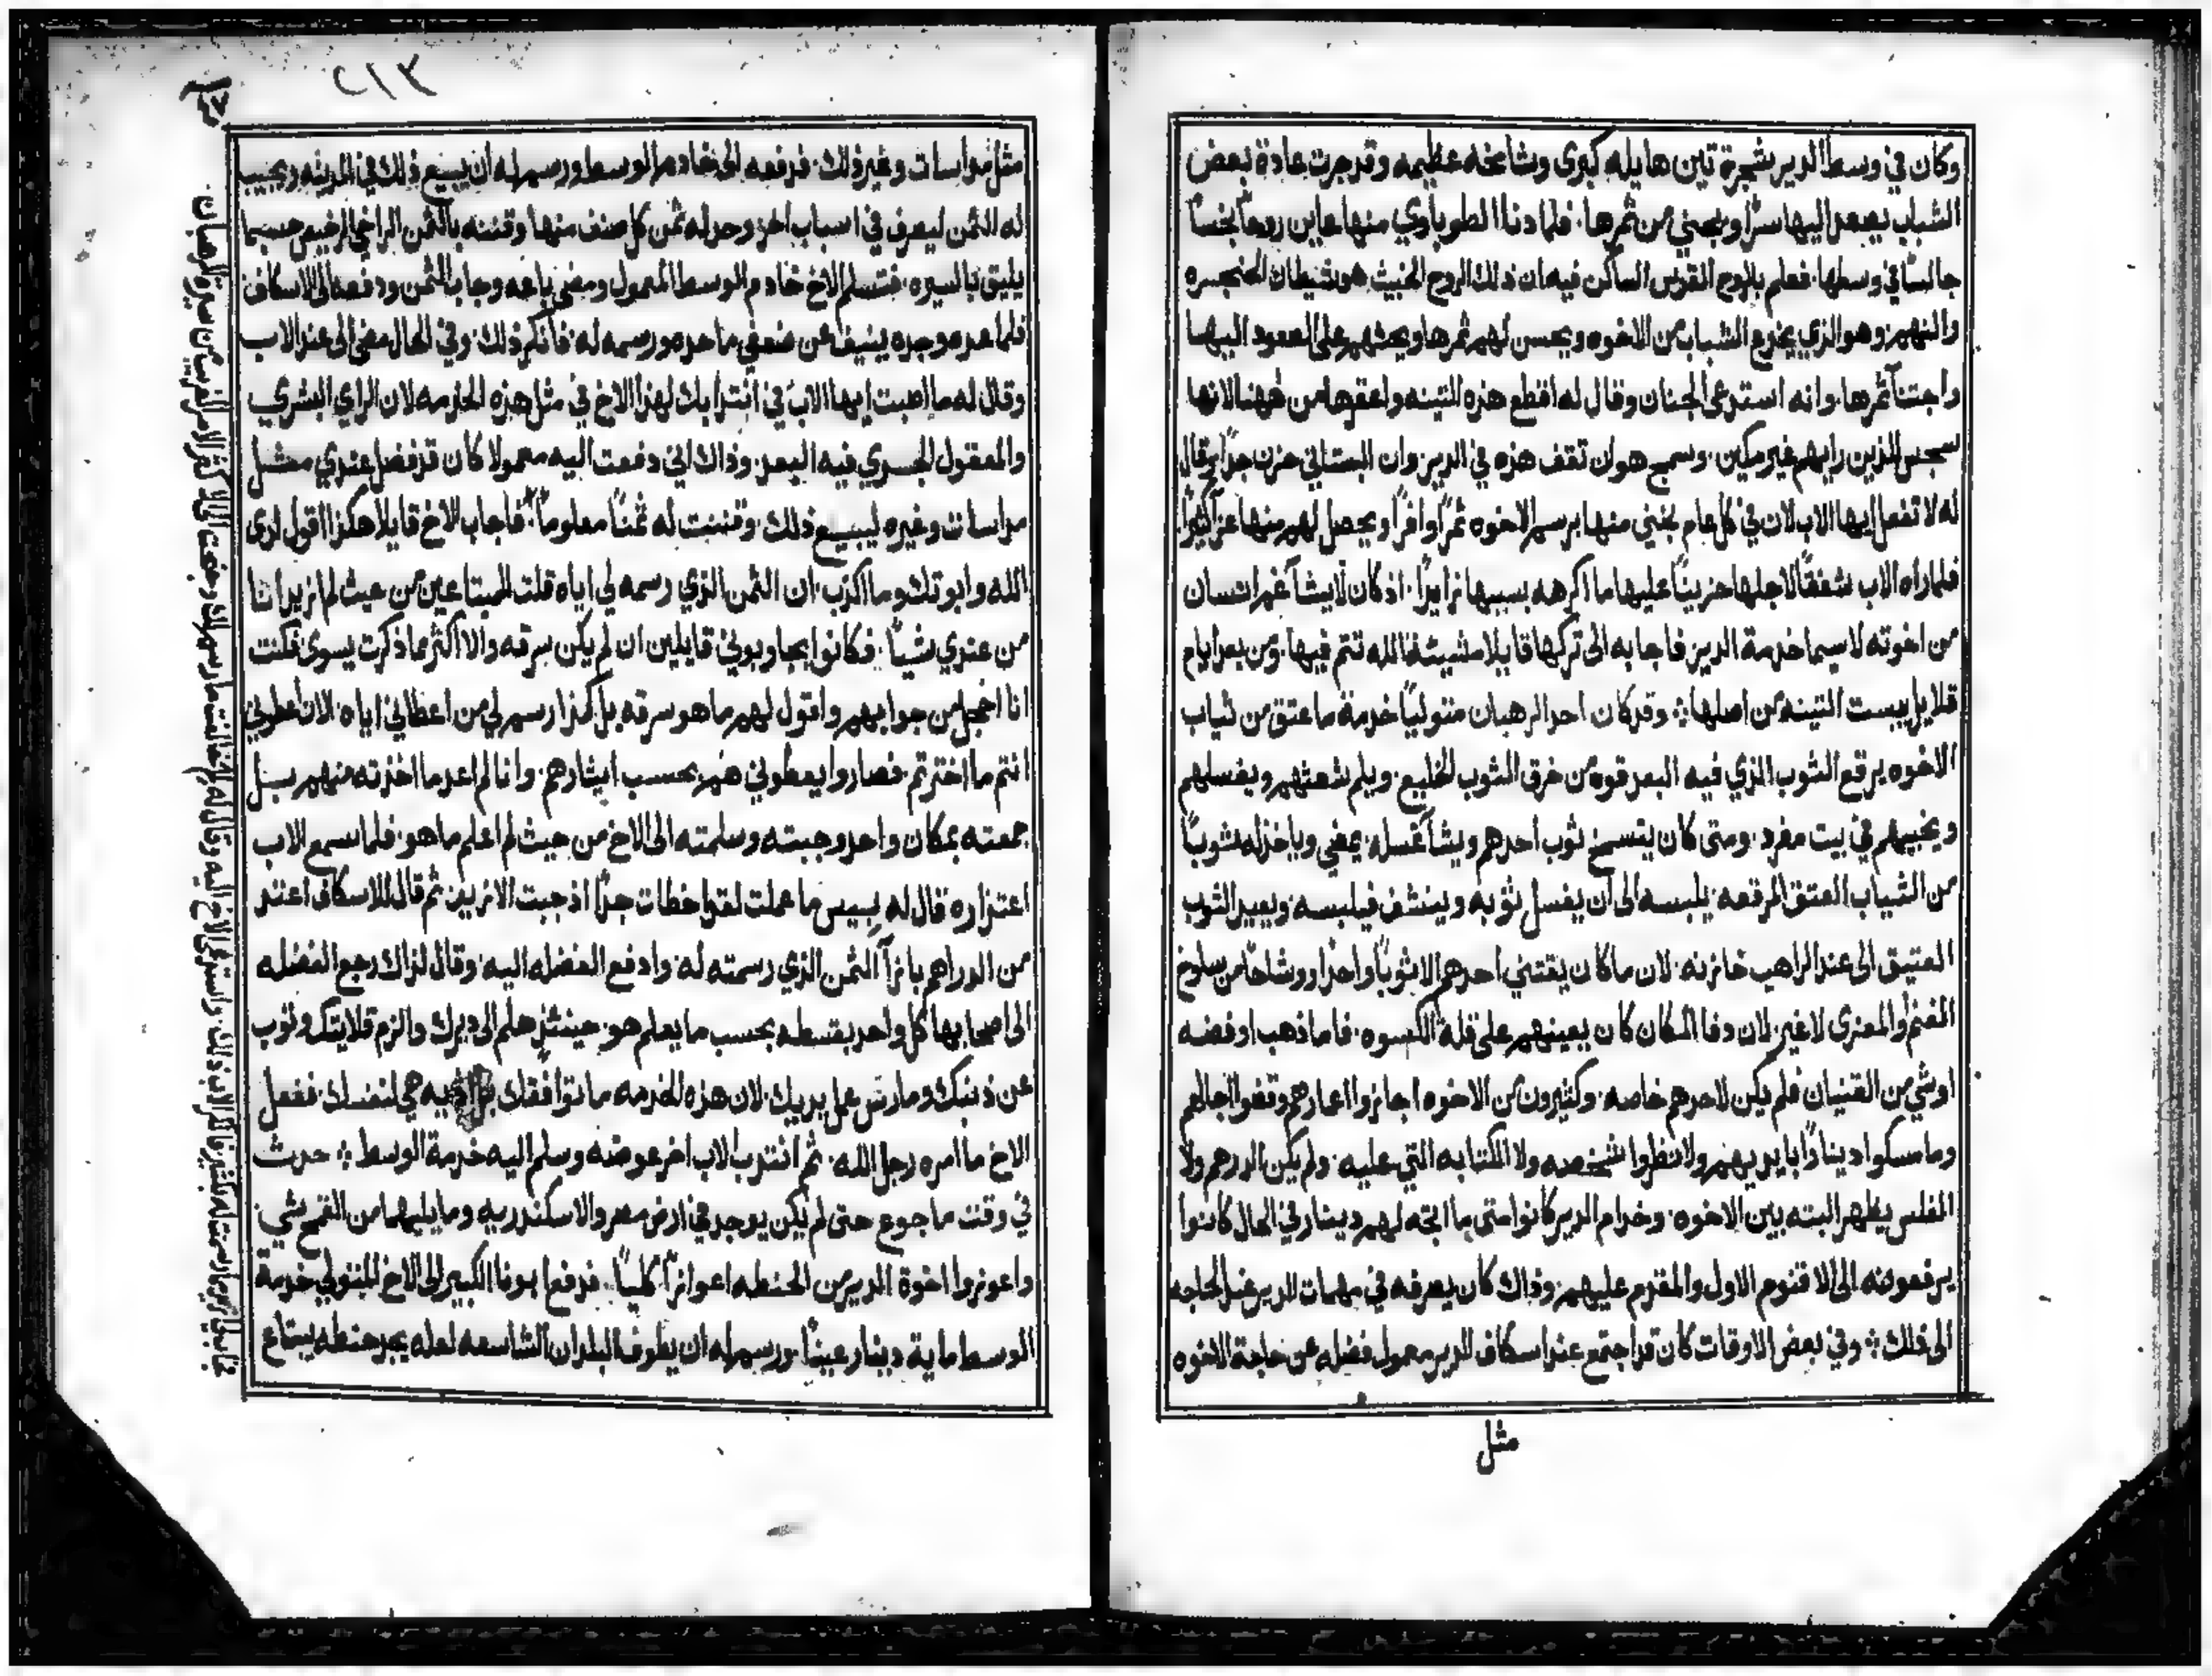 وكان في وسط الدير شجرة تين هايله كبرى وشامخه عظيمه وقد جرت عادة بعض
الشباب يصعد اليها سرًا ويجني من ثمرها. فلما دنا الطوباوي منها عاين روحًا نجسًا
جالسًا في وسطها. فعلم بالروح القدس الساكن فيه ان ذلك الروح الخبيث هو شيطان الحنجره
والنهم وهو الذي يخدع الشباب من الاخوه ويحسن لهم ثمرها ويحثهم على الصعود اليها
واجتنآ ثمرها. وانه استدعى الجنان وقال له اقطع هذه التينه واعقرها من ههنا لانها
سجس للذين رايهم غير مكين. وسمج هو ان تقف هذه في الدير. وان البستاني حزن جدًا وقال
له لا تفعل ايها الاب لان في كل عام نجني منها برسم الاخوه ثمرًا وافرًا ويحصل لهم منها عزآ كثيرًا.
فلما راه الاب شفقًا لاجلها حزينًا عليها ما اكرهه بسببها زايدًا. اذ كان لا يشآ غم انسان
من اخوته لا سيما خدمة الدير. فاجابه الى تركها قايلا مشيئة الله تتم فيها. ومن بعد ايام
قلايل يبست التينه من اصلها. وقد كان احد الرهبان متوليًا خدمة ما عتق من ثياب
الاخوه يرقع الثوب الذي فيه البعد قوه من خرق الثوب الخليع. ويلم شعثهم ويغسلهم
ويخبيهم في بيت مفرد. ومتى كان يتسخ ثوب احدهم ويشآ غسله. يمضي وياخذ له ثوبًا
من الثياب العتق المرقعه. يلبسه الى ان يغسل ثوبه وينشف فيلبسه. ويعيد الثوب
العتيق الى عند الراهب خازنه. لان ما كان يقتني احدهم الا ثوبًا واحدًا ووشاحًا من سلوخ
الغنم والمعزى لا غير. لان دفا المكان كان يعينهم على قلة الكسوه. فاما ذهب او فضه
او شي من القنيان فلم يكن لاحدهم خاصه. وكثيرون من الاخوه اجازوا اعمارهم وقضوا اجالهم
وما مسكوا دينارًا بايديهم ولا نظروا شخصه ولا الكتابه التي عليه. ولم يكن الدرهم ولا
الفلس يظهر البته بين الاخوه. وخدام الدير كانوا متى ما اتجه لهم دينار في الحال كانوا
يرفعونه الى الاقنوم الاول والمقدم عليهم. وذاك كان يصرفه في مهمات الدير عند الحاجه
الى ذلك. وفي بعض الاوقات كان قد اجتمع عند اسكاف الدير معمول فضل عن حاجة الاخوه
مثل
٢١٣
مثل مداسات وغير ذلك. فدفعه الى خادم الوسط ورسم له ان يبيع ذلك في المدينه ويجيب
له الثمن ليصرف في اسباب اخر. وحد له ثمن كل صنف منها وقننه بالثمن الراخي الرخيص حسبما
يليق بالسيره. فتسلم الاخ خادم الوسط المعمول ومضى باعه وجاب الثمن ودفعه الى الاسكاف
فلما عده وجده ينيف عن ضعفي ما حده ورسمه له فانكر ذلك. وفي الحال مضى الى عند الاب
وقال له ما اصبت ايها الاب في انتدابك لهذا الاخ في مثل هذه الخدمه لان الراي البشري
والمعقول الجسدي فيه البعد. وذاك اني دفعت اليه معمولا كان قد فضل عندي مثل
مداسات وغيره ليبيع ذلك. وقننت له ثمنًا معلومًا. فاجاب الاخ قايلا هكذا اقول لدى
الله وابوتك وما اكذب. ان الثمن الذي رسمه لي اياه قلت للمبتاعين من حيث لم ازيد انا
من عندي شيًا. فكانوا يجاوبوني قايلين ان لم يكن سرقه والا اكثر مما ذكرت يسوى فكنت
انا اخجل من جوابهم واقول لهم ما هو سرقه بل كذا رسم لي من اعطاني اياه. الان اعطوني
انتم ما اخترتم. فصاروا يعطوني هم بحسب ايثارهم. وانا لم اعد ما اخذته منهم بل
جمعته بمكان واحد وجبته وسلمته الى الاخ من حيث لم اعلم ما هو. فلما سمع الاب
اعتذاره قال له بيس ما عملت لقد اخطات جدًا اذ جبت الازيد. ثم قال للاسكاف اعتد
من الدراهم بازآ الثمن الذي رسمته له. وادفع الفضله اليه. وقال لذاك رجع الفضله
الى اصحابها كل واحد بقسطه بحسب ما يعلم هو. حينئذ هلم الى ديرك والزم قلايتك وتوب
عن ذنبك ومارس عمل يديك. لان هذه الخدمه ما توافقك هي لنفسك. ففعل
الاخ ما امره رجل الله. ثم انتدب الاب اخر عوضه وسلم اليه خدمة الوسط. حدث
في وقت ما جوع حتى لم يكن يوجد في ارض مصر والاسكندريه وما يليهما من القمح شي.
واعوزوا اخوة الدير من الحنطه اعوازًا كليًا. فدفع ابونا الكبير الى الاخ المتولي خدمة
الوسط ماية دينار عينًا. ورسم له ان يطوف البلدان الشاسعه لعله يجد حنطه يبتاع